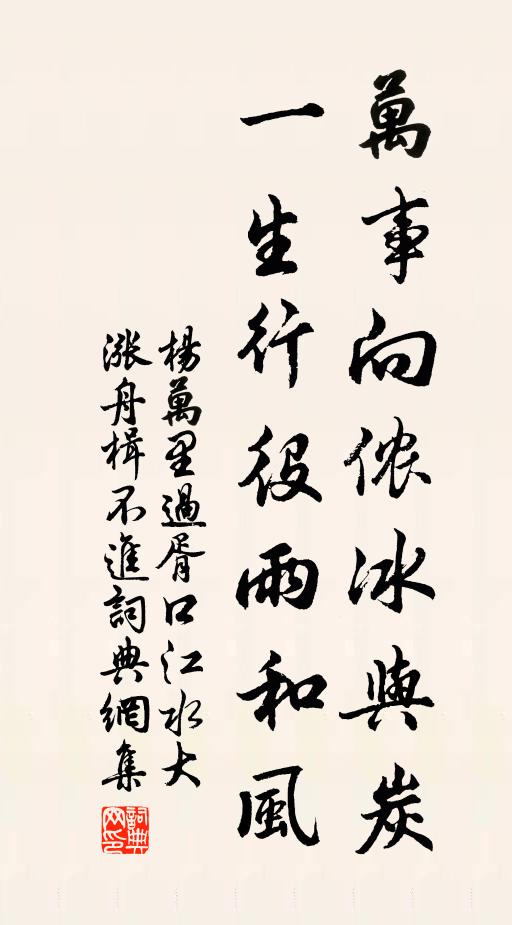 萬事向侬冰與炭
一生行役雨和風
楊萬里過胥口江水大
漲舟楫不進詞典網集
詞典
网印